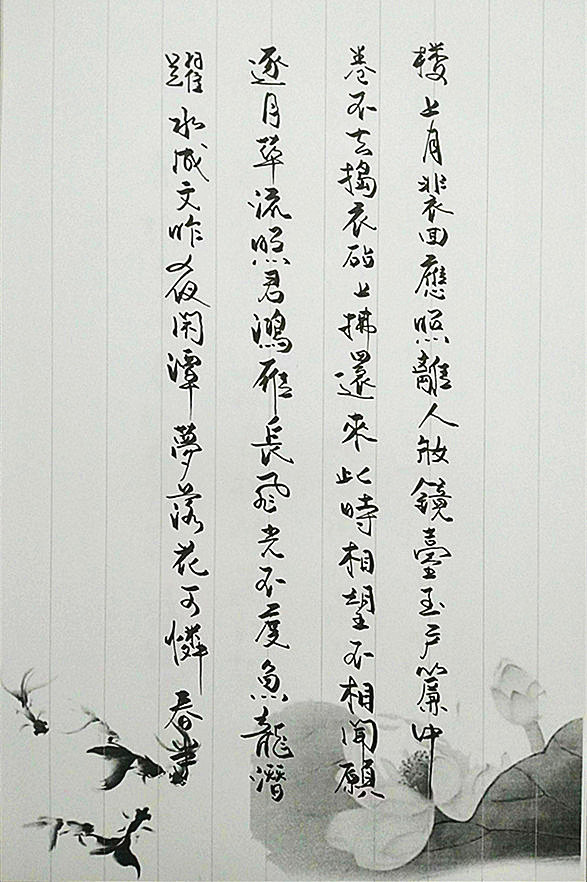 樓上月裴回應照離人妝鏡臺玉戶簾中
卷不去搗衣砧上拂還來此時相望不相聞願
逐月華流照君鴻雁長飛光不度魚龍潛
躍水成文昨夜閑潭夢落花可憐春半